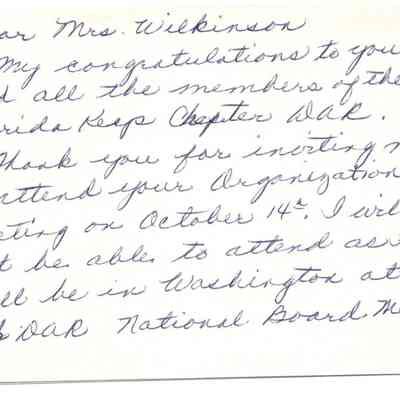 ar Mrs. Wilkinson
My congratulations to you
d all the members of the
rida Keys Chapter DAR.
Thank you for inviting m
attend your Organization
eting on October 14th. I wil
t be able to attend as
ll be in Washington at
DAR National Board M